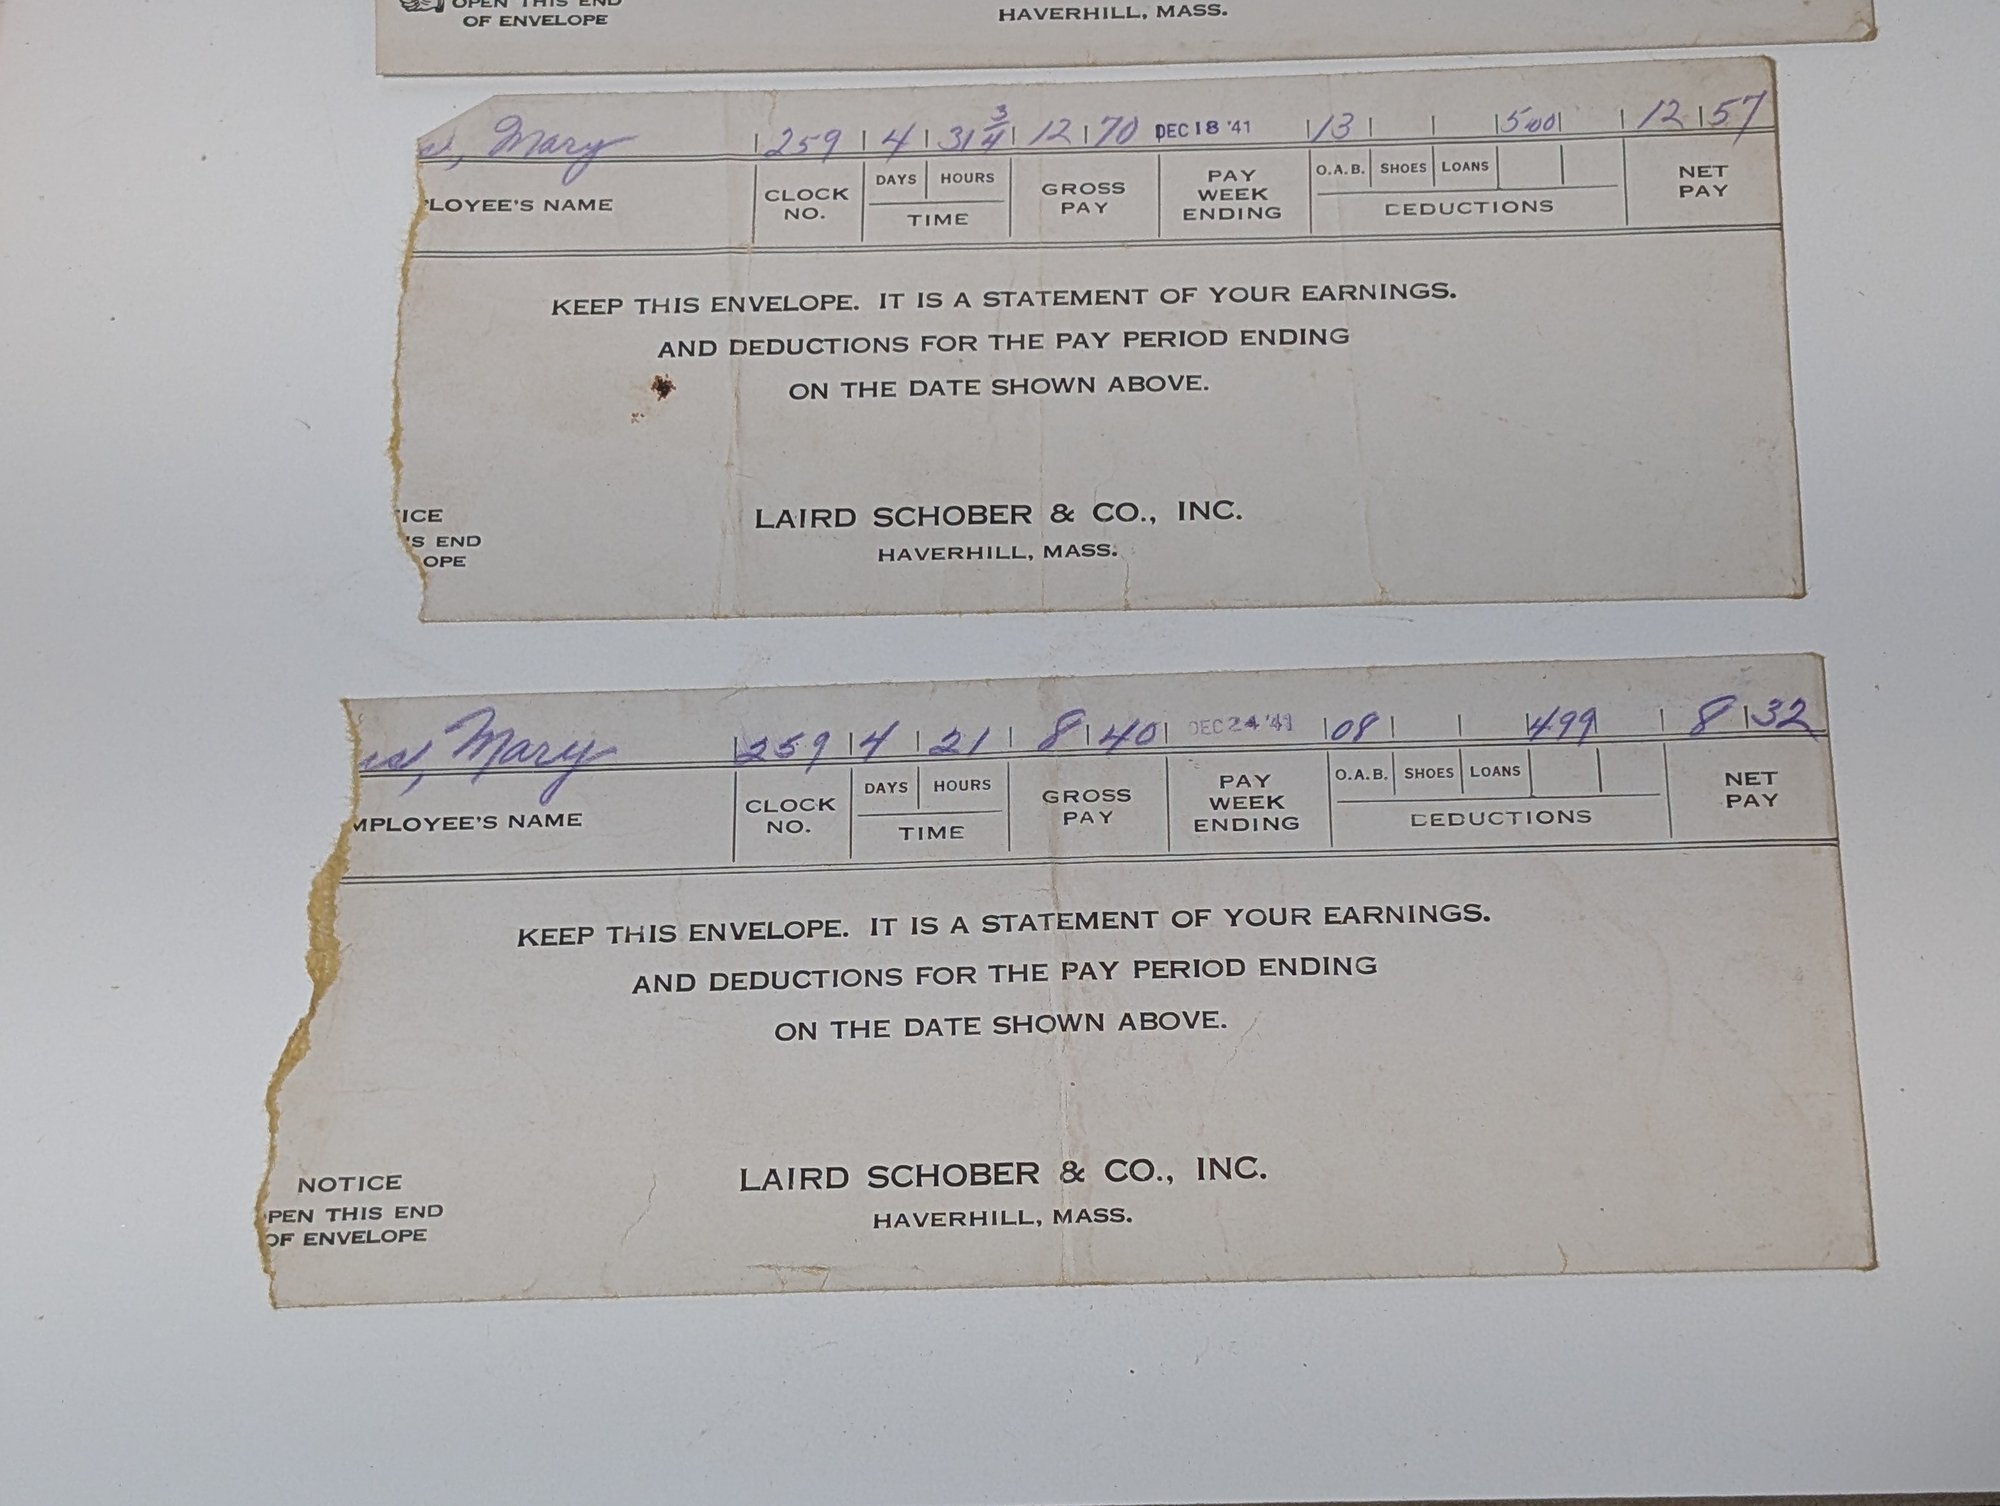 OPEN THIS END
OF ENVELOPE
HAVERHILL, MASS.
Mary 259 4 31 3/4 12 70 DEC 18 '41 13 500 12 57
PLOYEE'S NAME CLOCK NO. DAYS HOURS TIME GROSS PAY PAY WEEK ENDING O.A.B. SHOES LOANS DEDUCTIONS NET PAY
KEEP THIS ENVELOPE. IT IS A STATEMENT OF YOUR EARNINGS.
AND DEDUCTIONS FOR THE PAY PERIOD ENDING
ON THE DATE SHOWN ABOVE.
LAIRD SCHOBER & CO., INC.
HAVERHILL, MASS.
ICE
'S END
OPE
Mary 259 4 21 8 40 DEC 24 '41 08 499 8 32
MPLOYEE'S NAME CLOCK NO. DAYS HOURS TIME GROSS PAY PAY WEEK ENDING O.A.B. SHOES LOANS DEDUCTIONS NET PAY
KEEP THIS ENVELOPE. IT IS A STATEMENT OF YOUR EARNINGS.
AND DEDUCTIONS FOR THE PAY PERIOD ENDING
ON THE DATE SHOWN ABOVE.
LAIRD SCHOBER & CO., INC.
HAVERHILL, MASS.
NOTICE
PEN THIS END
OF ENVELOPE